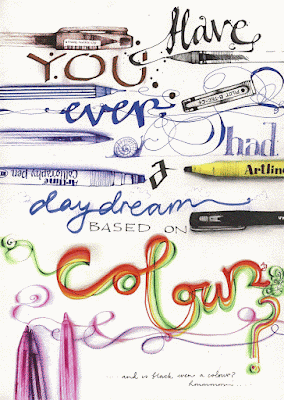 Have
YOU
ever
had
a
Calligraphy Pen Artline
Artline
daydream
BASED ON
Colour?
...and is black even a colour?
hmmmmm....